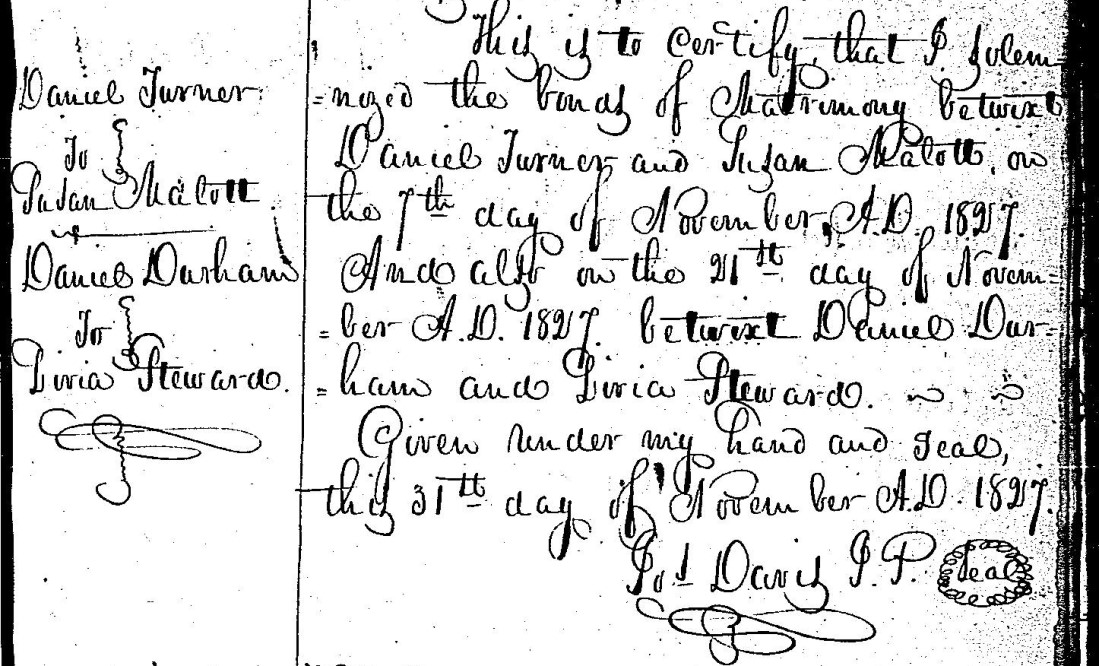 Daniel Turner
To
Susan Malott
Daniel Durham
To
Livia Steward.
This is to Certify, that I solem-
=nized the bonds of Matrimony betwixt
Daniel Turner and Susan Malott, on
the 7th day of November, A.D. 1827.
And also on the 21th day of Novem-
=ber A.D. 1827. betwixt Daniel Dur-
=ham and Livia Steward.
Given under my hand and seal,
this 31th day of November A.D. 1827.
Jos Davis J.P. Seal